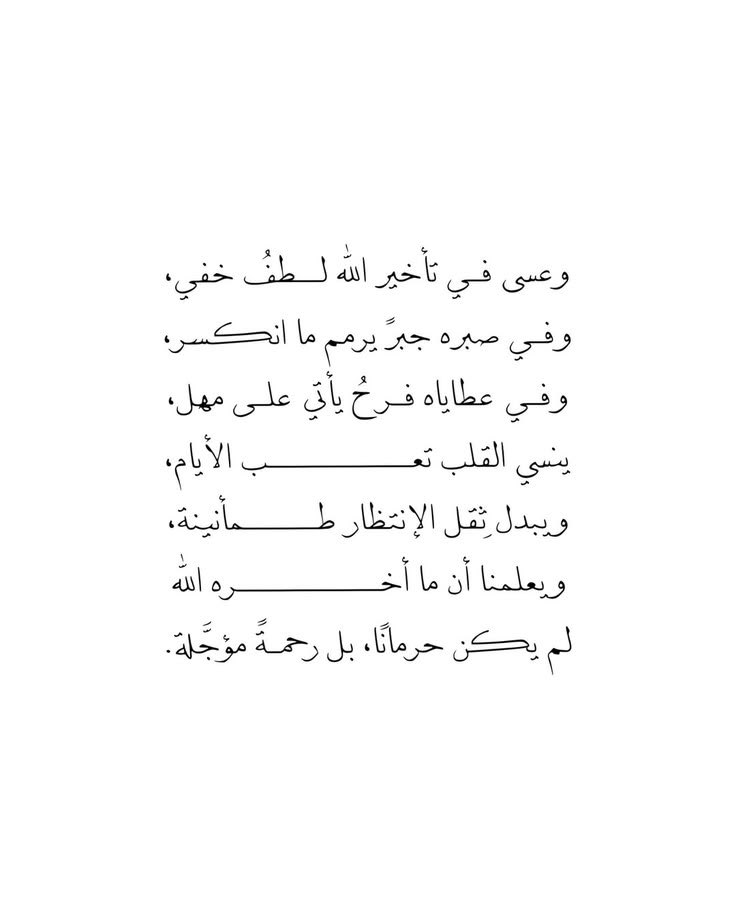 وعسى في تأخير الله لطفُ خفي،
وفي صبره جبرً يرمم ما انكسر،
وفي عطاياه فرحُ يأتي على مهل،
ينسي القلب تعب الأيام،
ويبدل ثِقل الإنتظار طمأنينة،
ويعلمنا أن ما أخره الله
لم يكن حرمانًا، بل رحمةً مؤجَّلة.